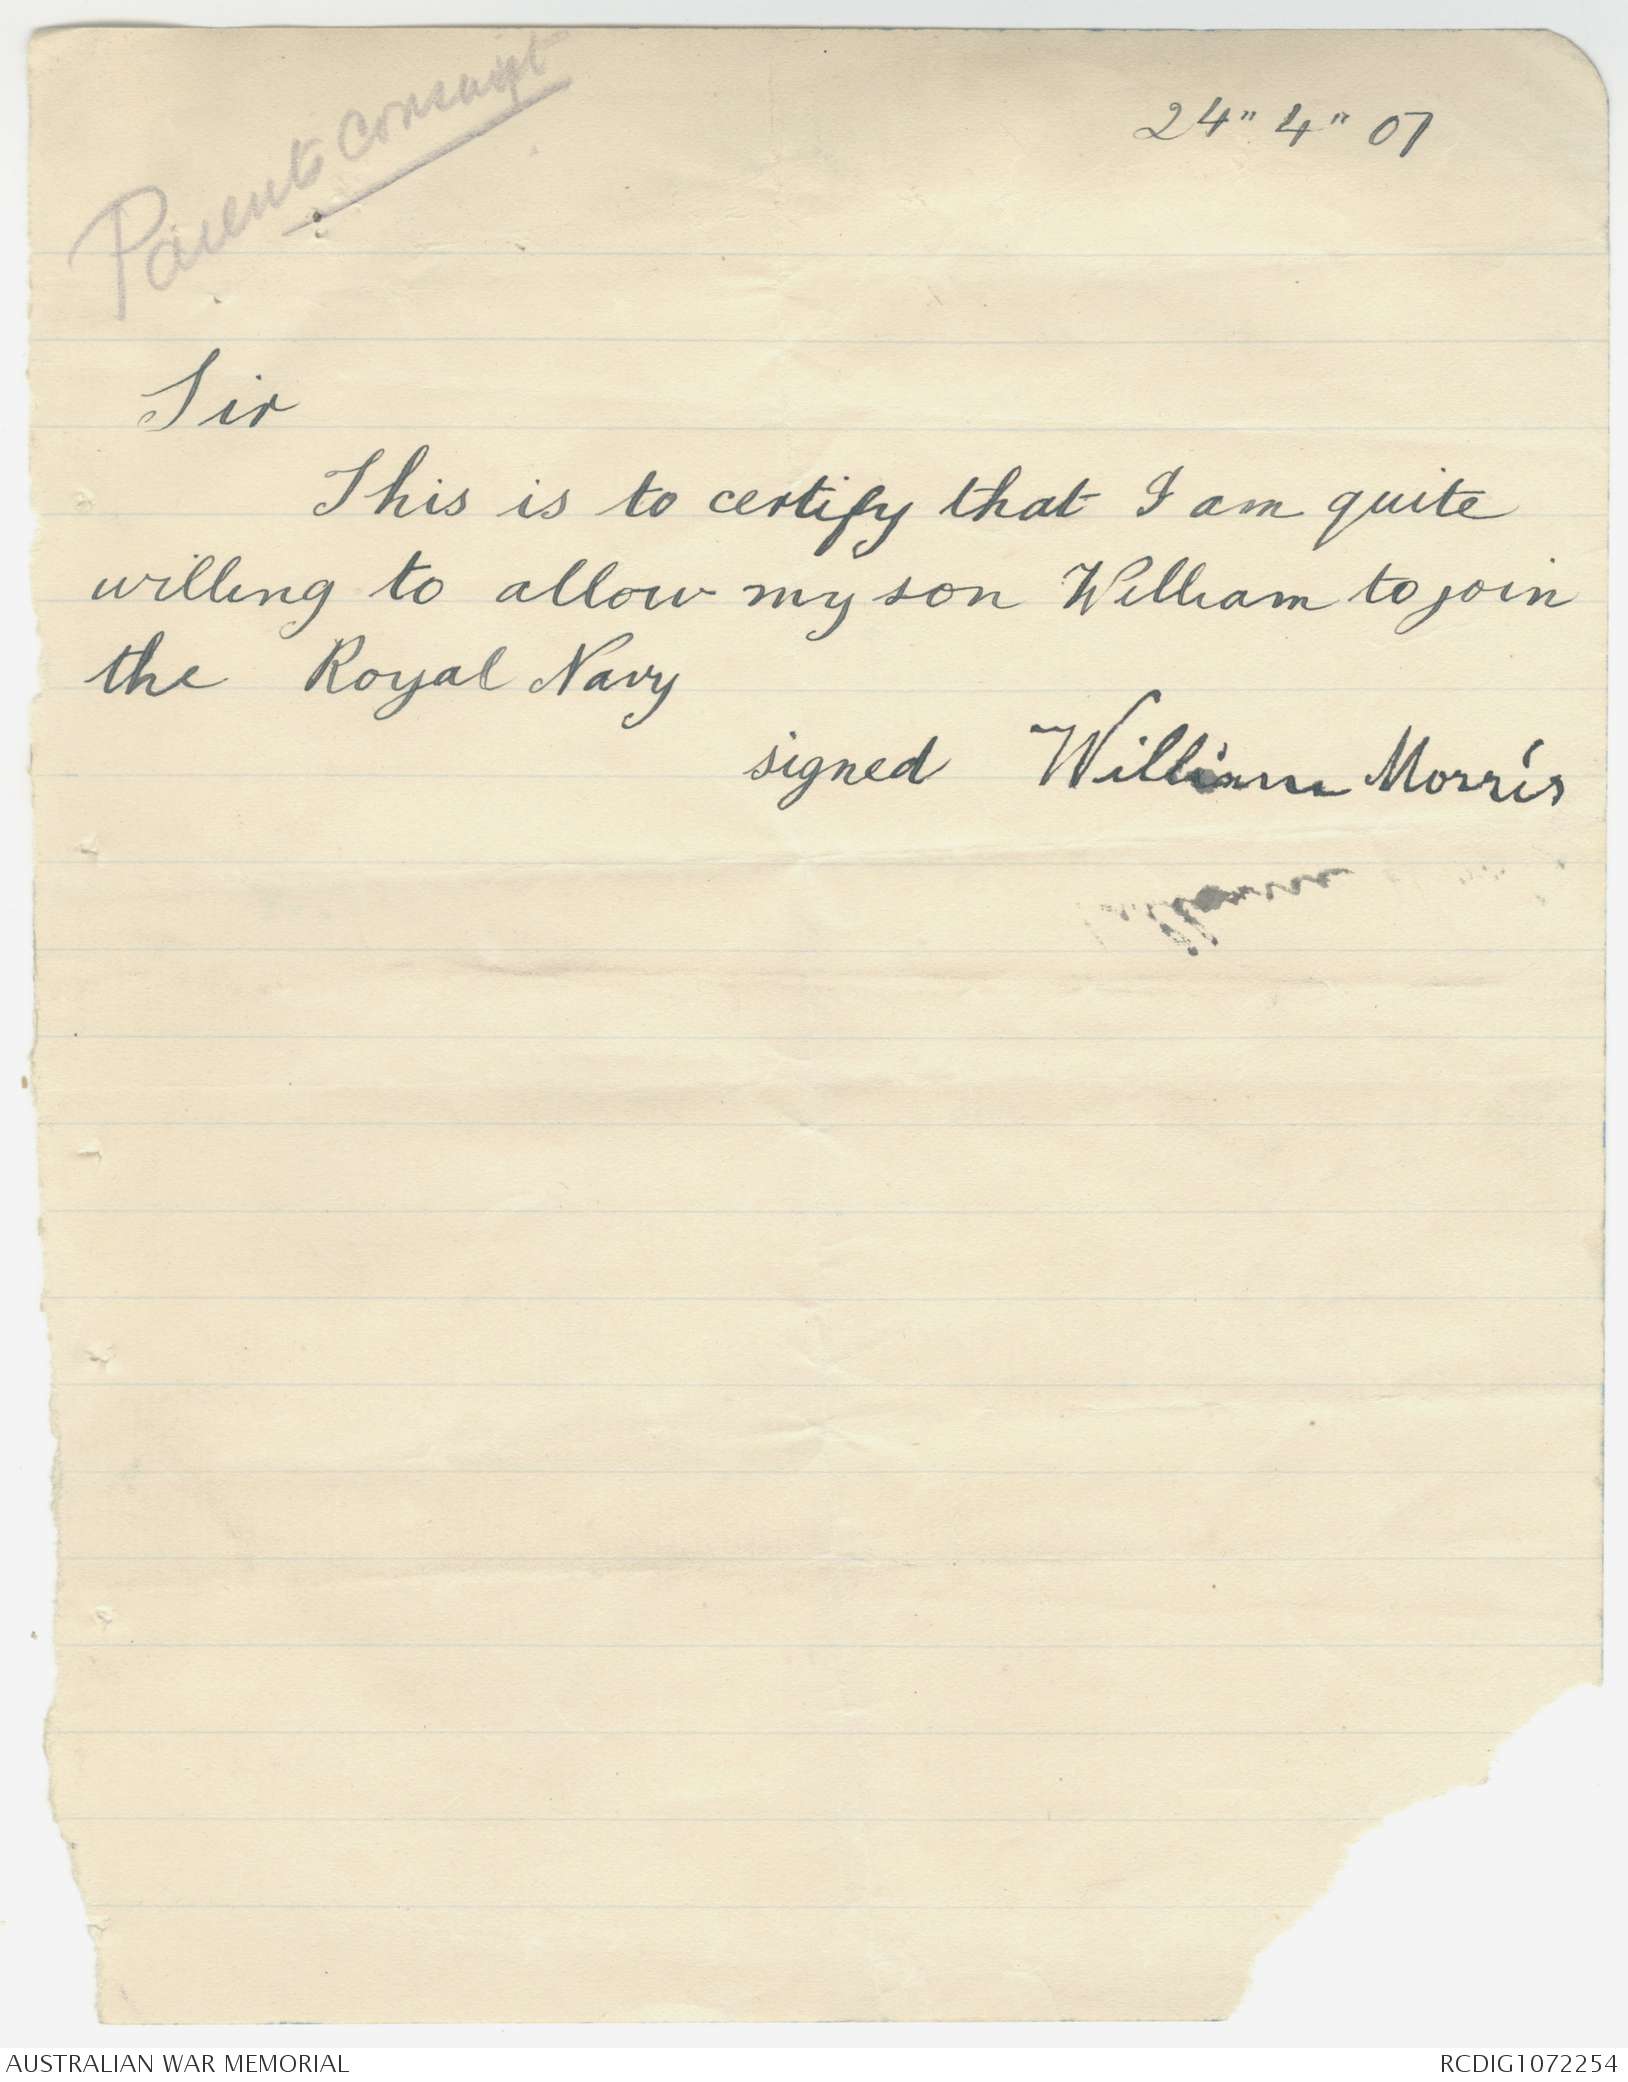 Parents consent
24" 4" 07
Sir
This is to certify that I am quite
willing to allow my son William to join
the Royal Navy
signed William Morris
AUSTRALIAN WAR MEMORIAL
RCDIG1072254